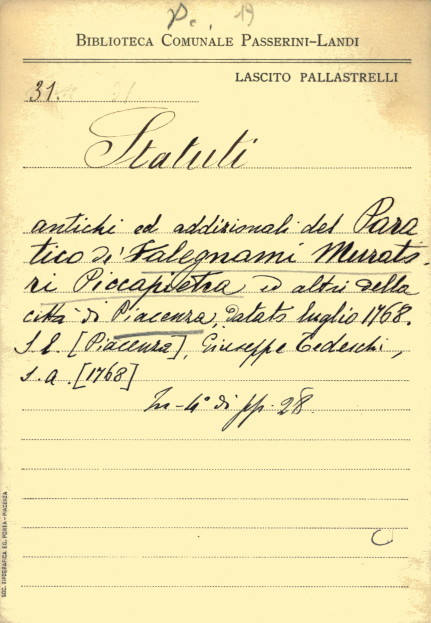 p. 19
BIBLIOTECA COMUNALE PASSERINI-LANDI
LASCITO PALLASTRELLI
31.
Statuti
antichi ed addizionali del Para
tico de' Falegnami Murato
ri Piccapietra ed altri della
città di Piacenza, Datato luglio 1768.
S. l. [Piacenza], Giuseppe Tedeschi,
s. a. [1768]
In-4° di pp. 28.
SOC. TIPOGRAFICA ED. PORTA - PIACENZA